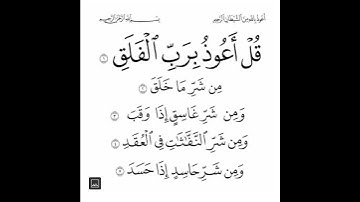 أعوذ بالله من الشيطان الرجيم بسم الله الرحمن الرحيم
قُلۡ أَعُوذُ بِرَبِّ ٱلۡفَلَقِ ١
مِن شَرِّ مَا خَلَقَ ٢
وَمِن شَرِّ غَاسِقٍ إِذَا وَقَبَ ٣
وَمِن شَرِّ ٱلنَّفَّٰثَٰتِ فِي ٱلۡعُقَدِ ٤
وَمِن شَرِّ حَاسِدٍ إِذَا حَسَدَ ٥